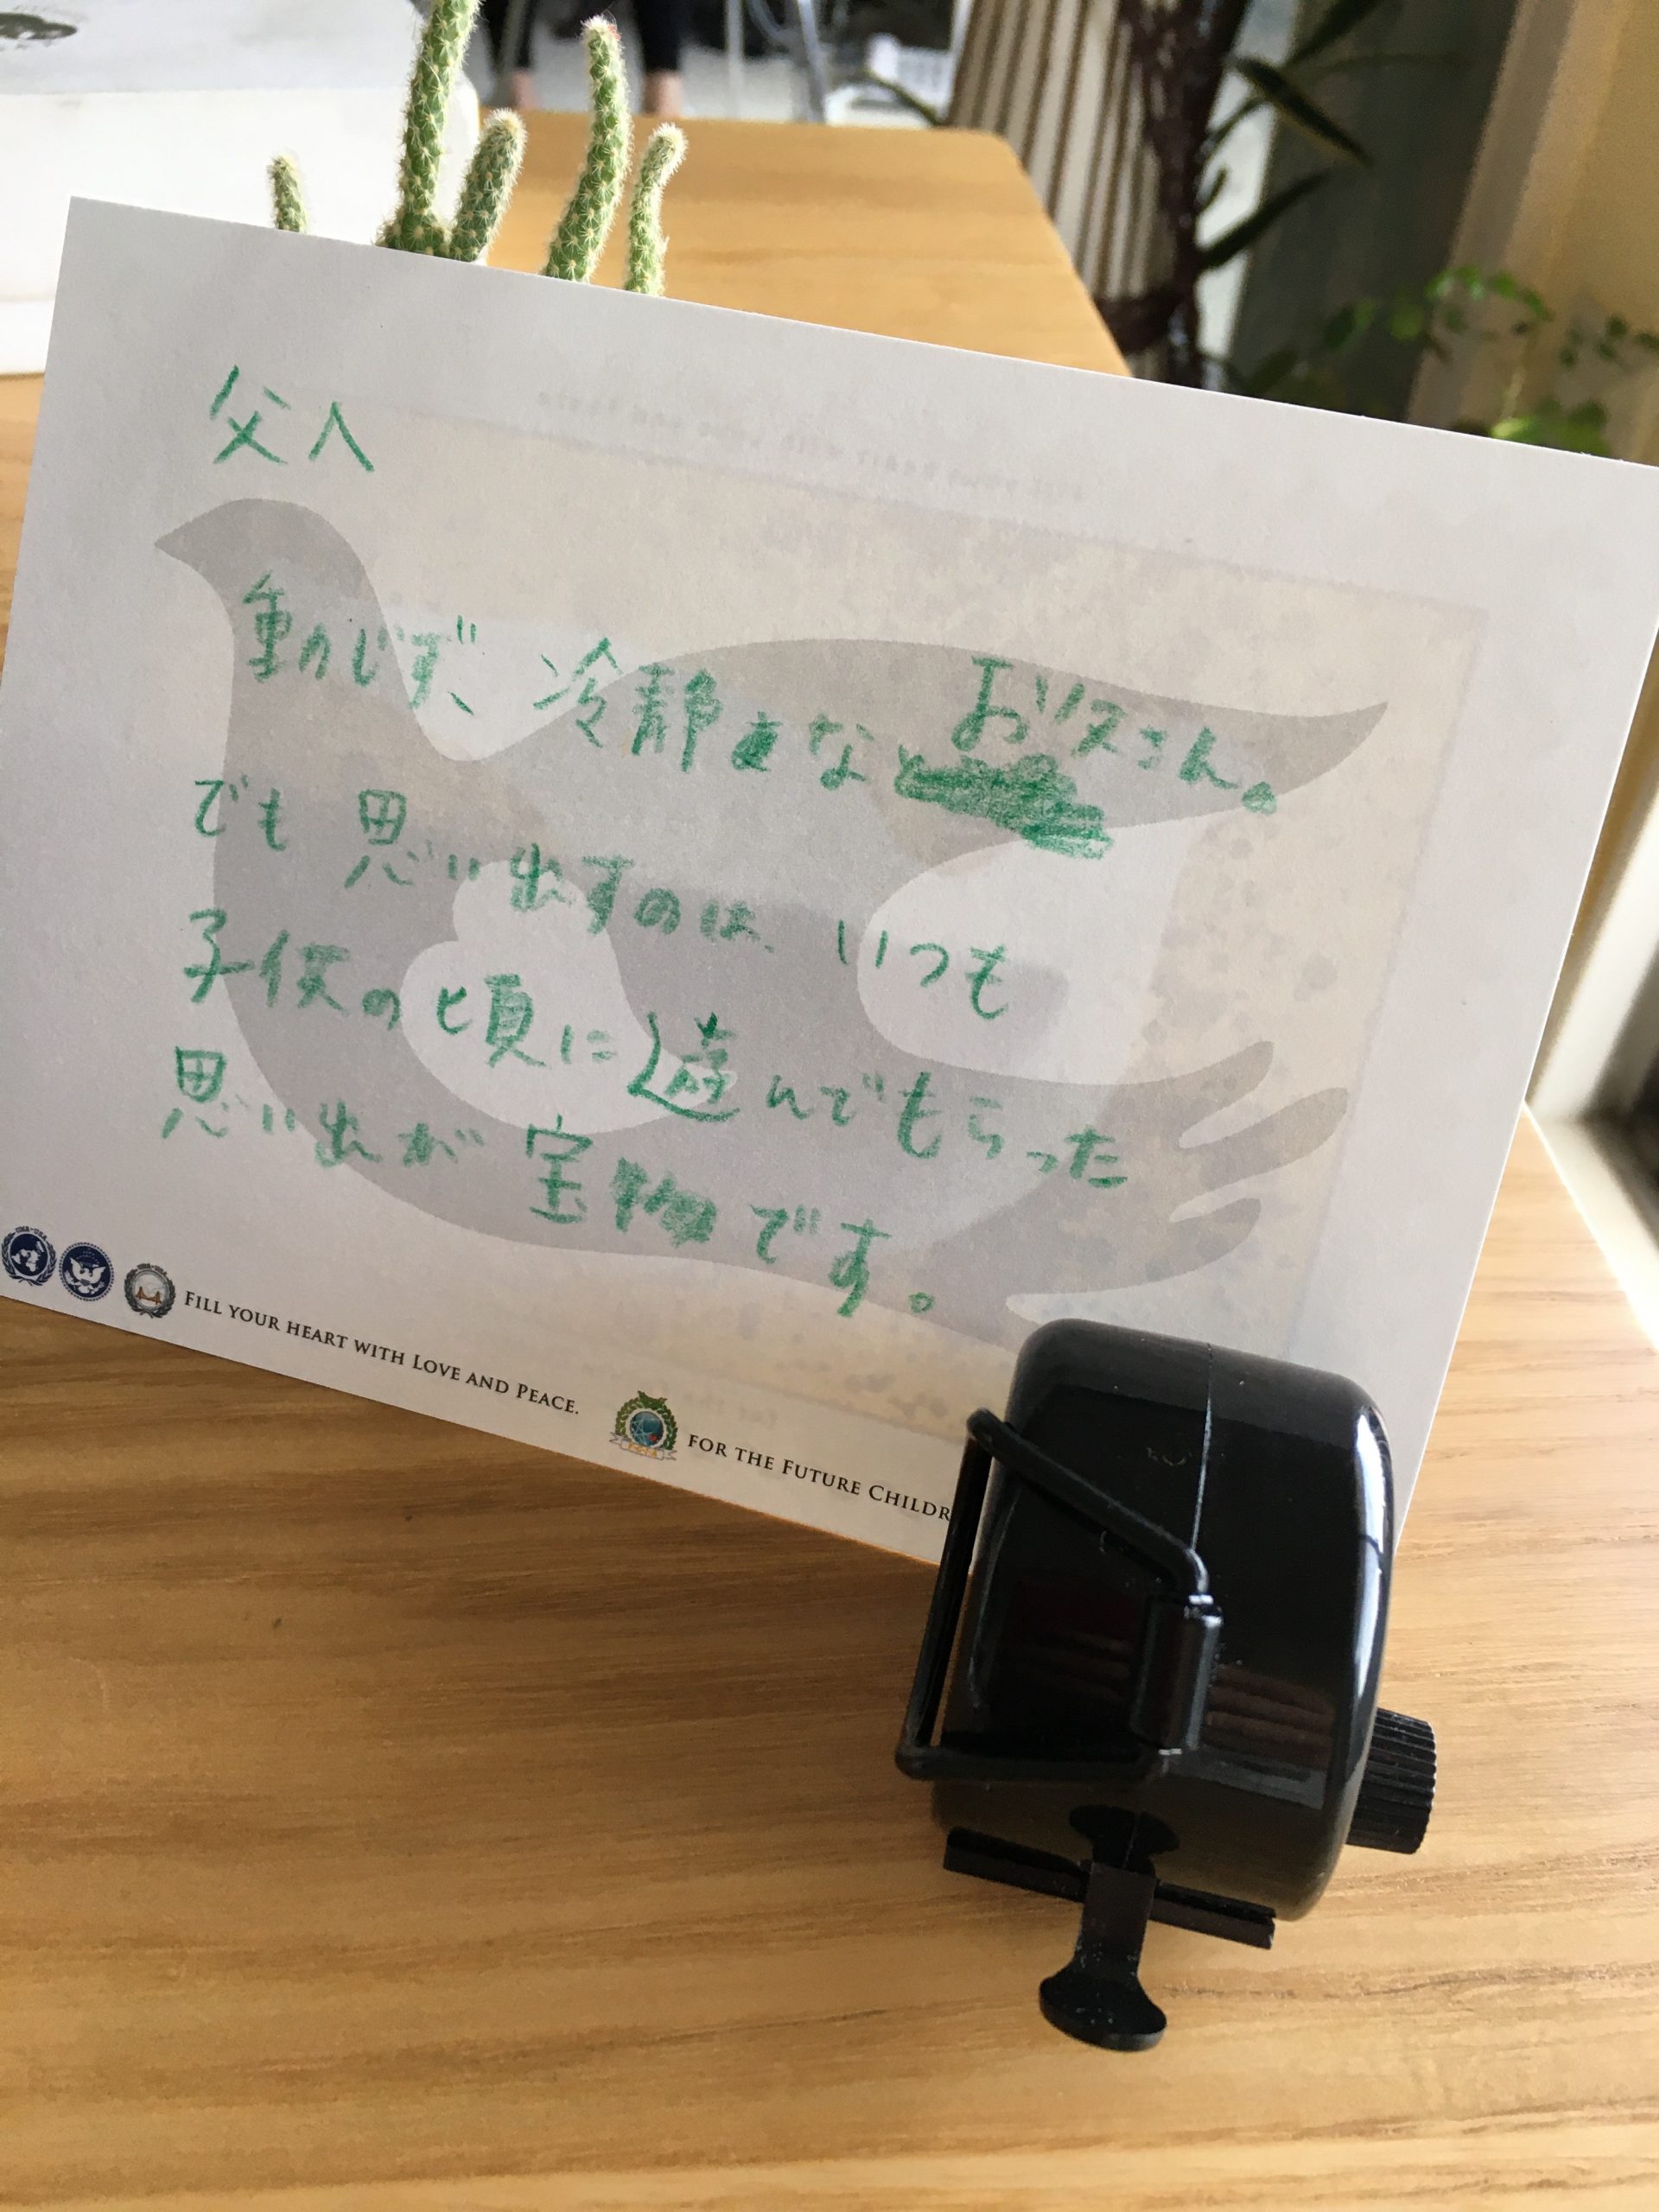 父へ
動じず、冷静なお父さん。
でも 思い出すのは いつも
子供の頃に遊んでもらった
思い出が宝物です。
FILL YOUR HEART WITH LOVE AND PEACE.
FOR THE FUTURE CHILDR